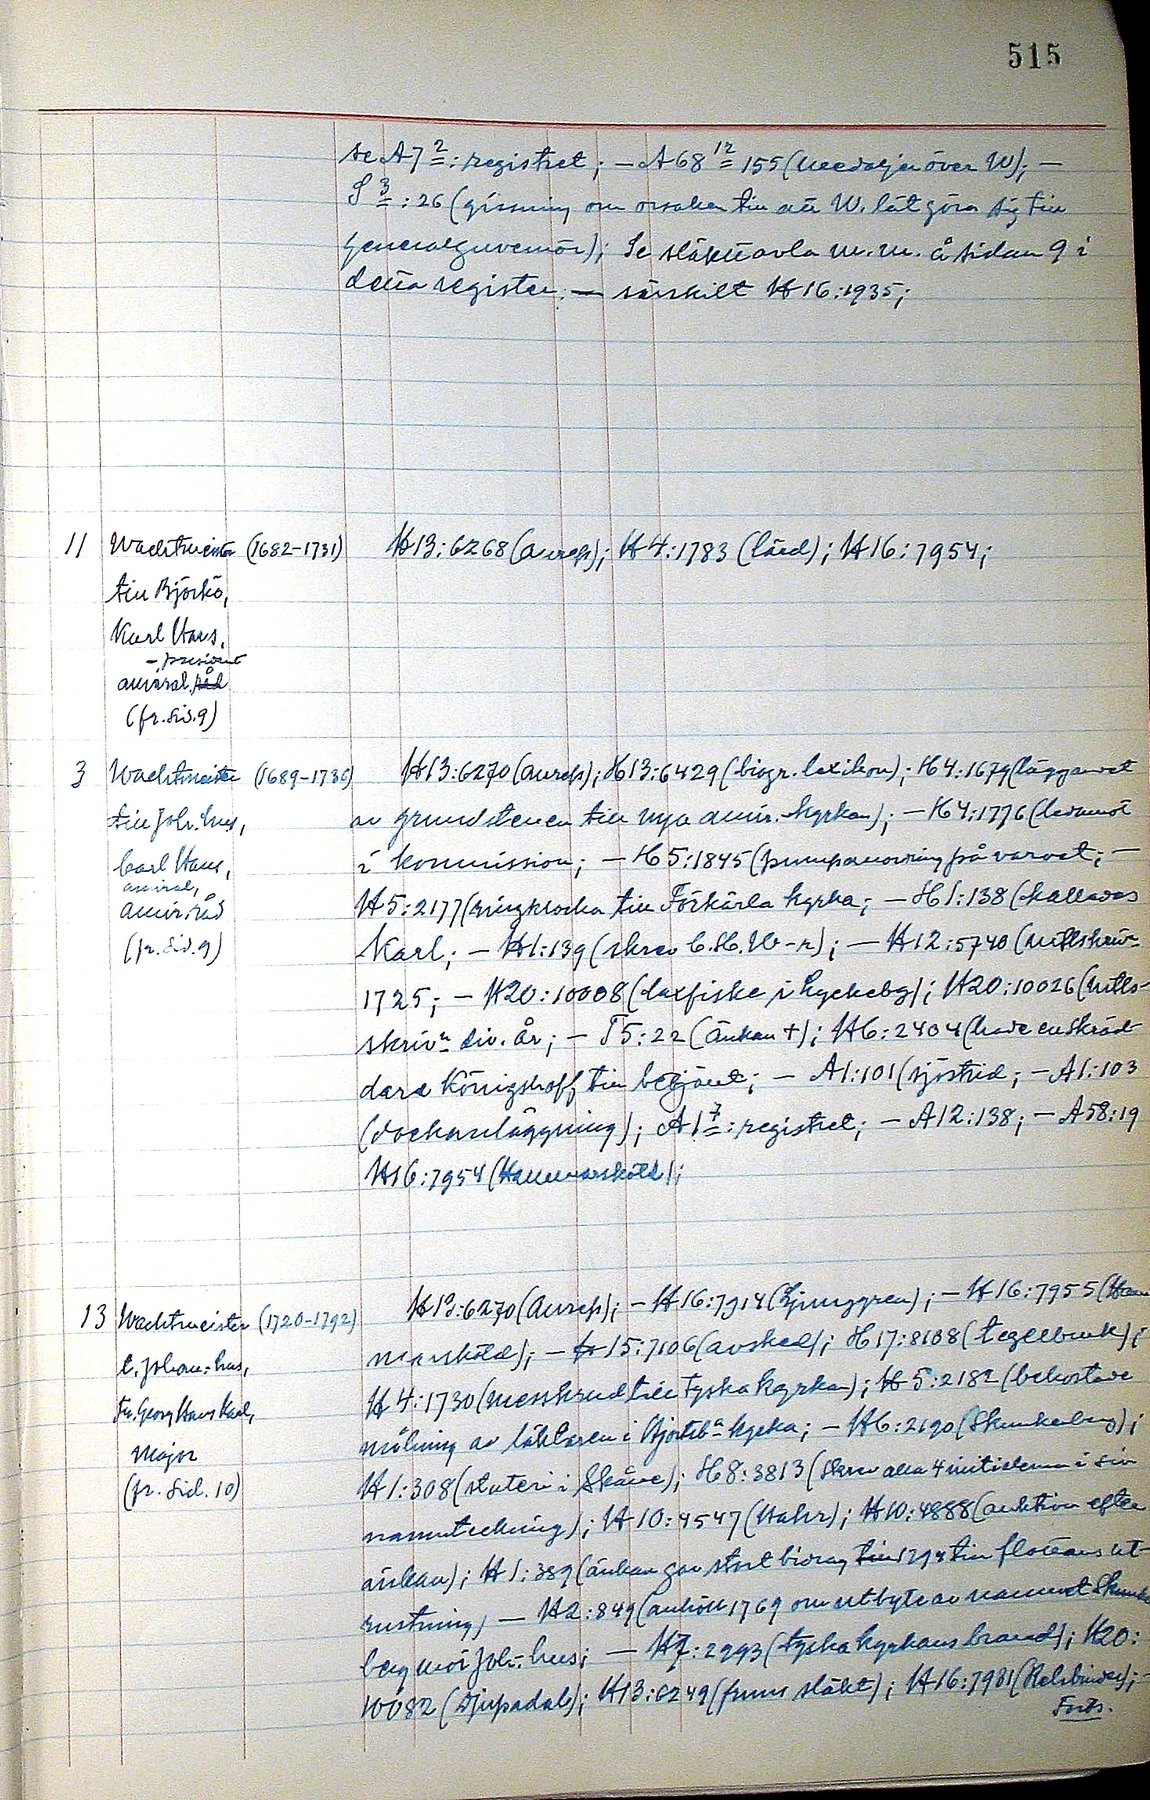 515
se A7 2 : registret; — A68 12 155 (medalj över W); —
S 3 : 26 (gissning om orsaken till att W. lät göra sig till
generalguvernör); Se släkttavla m.m. å sidan 9 i
detta register; — särskilt H16:1935;
11 Wachtmeister (1682-1731) H13:6268 (avresp); H4:1783 (lärd); H16:7954;
till Björkö,
Karl Hans,
- president
amiral. råd
(fr. sid. 9)
3 Wachtmeister (1689-1736) H13:6270 (avresp); H13:6429 (biogr. lexikon); H4:1679 (läggandet
till Joh:hus, av grundstenen till nya amir. kyrkan); — H4:1776 (ledamot
Carl Hans, i kommission; — H5:1845 (pumpanordning på varvet; —
amiral,
amir. råd H5:2177 (ringklocka till Förkärla kyrka; — H1:138 (kallades
(fr. sid. 9) Karl; — H1:139 (skrev C.H.W-r); — H12:5740 (mtlskrivn
1725; — H20:10008 (laxfiske i Lyckeby); H20:10026 (mtls-
skrivn div. år; — T5:22 (änkan +); H6:2404 (hade en skräd-
dare Königshoff till betjänt; — A1:101 (sjöstrid; — A1:103
(dockanläggning); A1 7 : registret; — A12:138; — A58:19
H16:7954 (Hammarsköld);
13 Wachtmeister (1720-1792) H13:6270 (avresp); — H16:7914 (Ljunggren); — H16:7955 (Ham
t. Johan:hus, marsköld); — H15:7106 (avsked); H17:8108 (tegelbruk);
Fr. Georg Hans Karl, H4:1730 (messkrud till Tyska kyrkan); H5:2182 (bekostade
Major målning av läktaren i Hjortsbn kyrka; — H6:2190 (Skunkeberg);
(fr. sid. 10) H1:308 (stuteri i Skåne); H8:3813 (skrev alla 4 initialerna i sin
namnteckning); H10:4547 (Hahr); H10:4888 (auktion efter
änkan); H1:389 (änkan gav stort bidrag till 1794 till flottans ut-
rustning) — H2:849 (anhöll 1769 om utbyte av namnet Skunke
berg mot Joh:hus; — H7:2993 (tyska kyrkans brand); H20:
10082 (Djupadal); H13:6249 (fruns släkt); H16:7981 (Rehbinder); —
Forts.